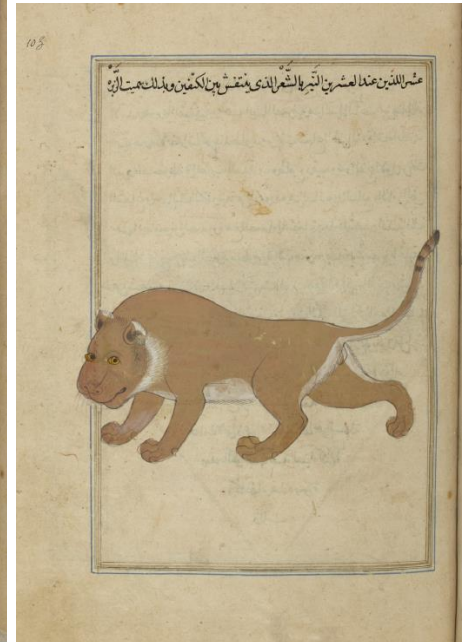 108
عشر اللذين عند العشرين النيرة بالشعر الذى ينتفش بين الكتفين وبذلك سميت